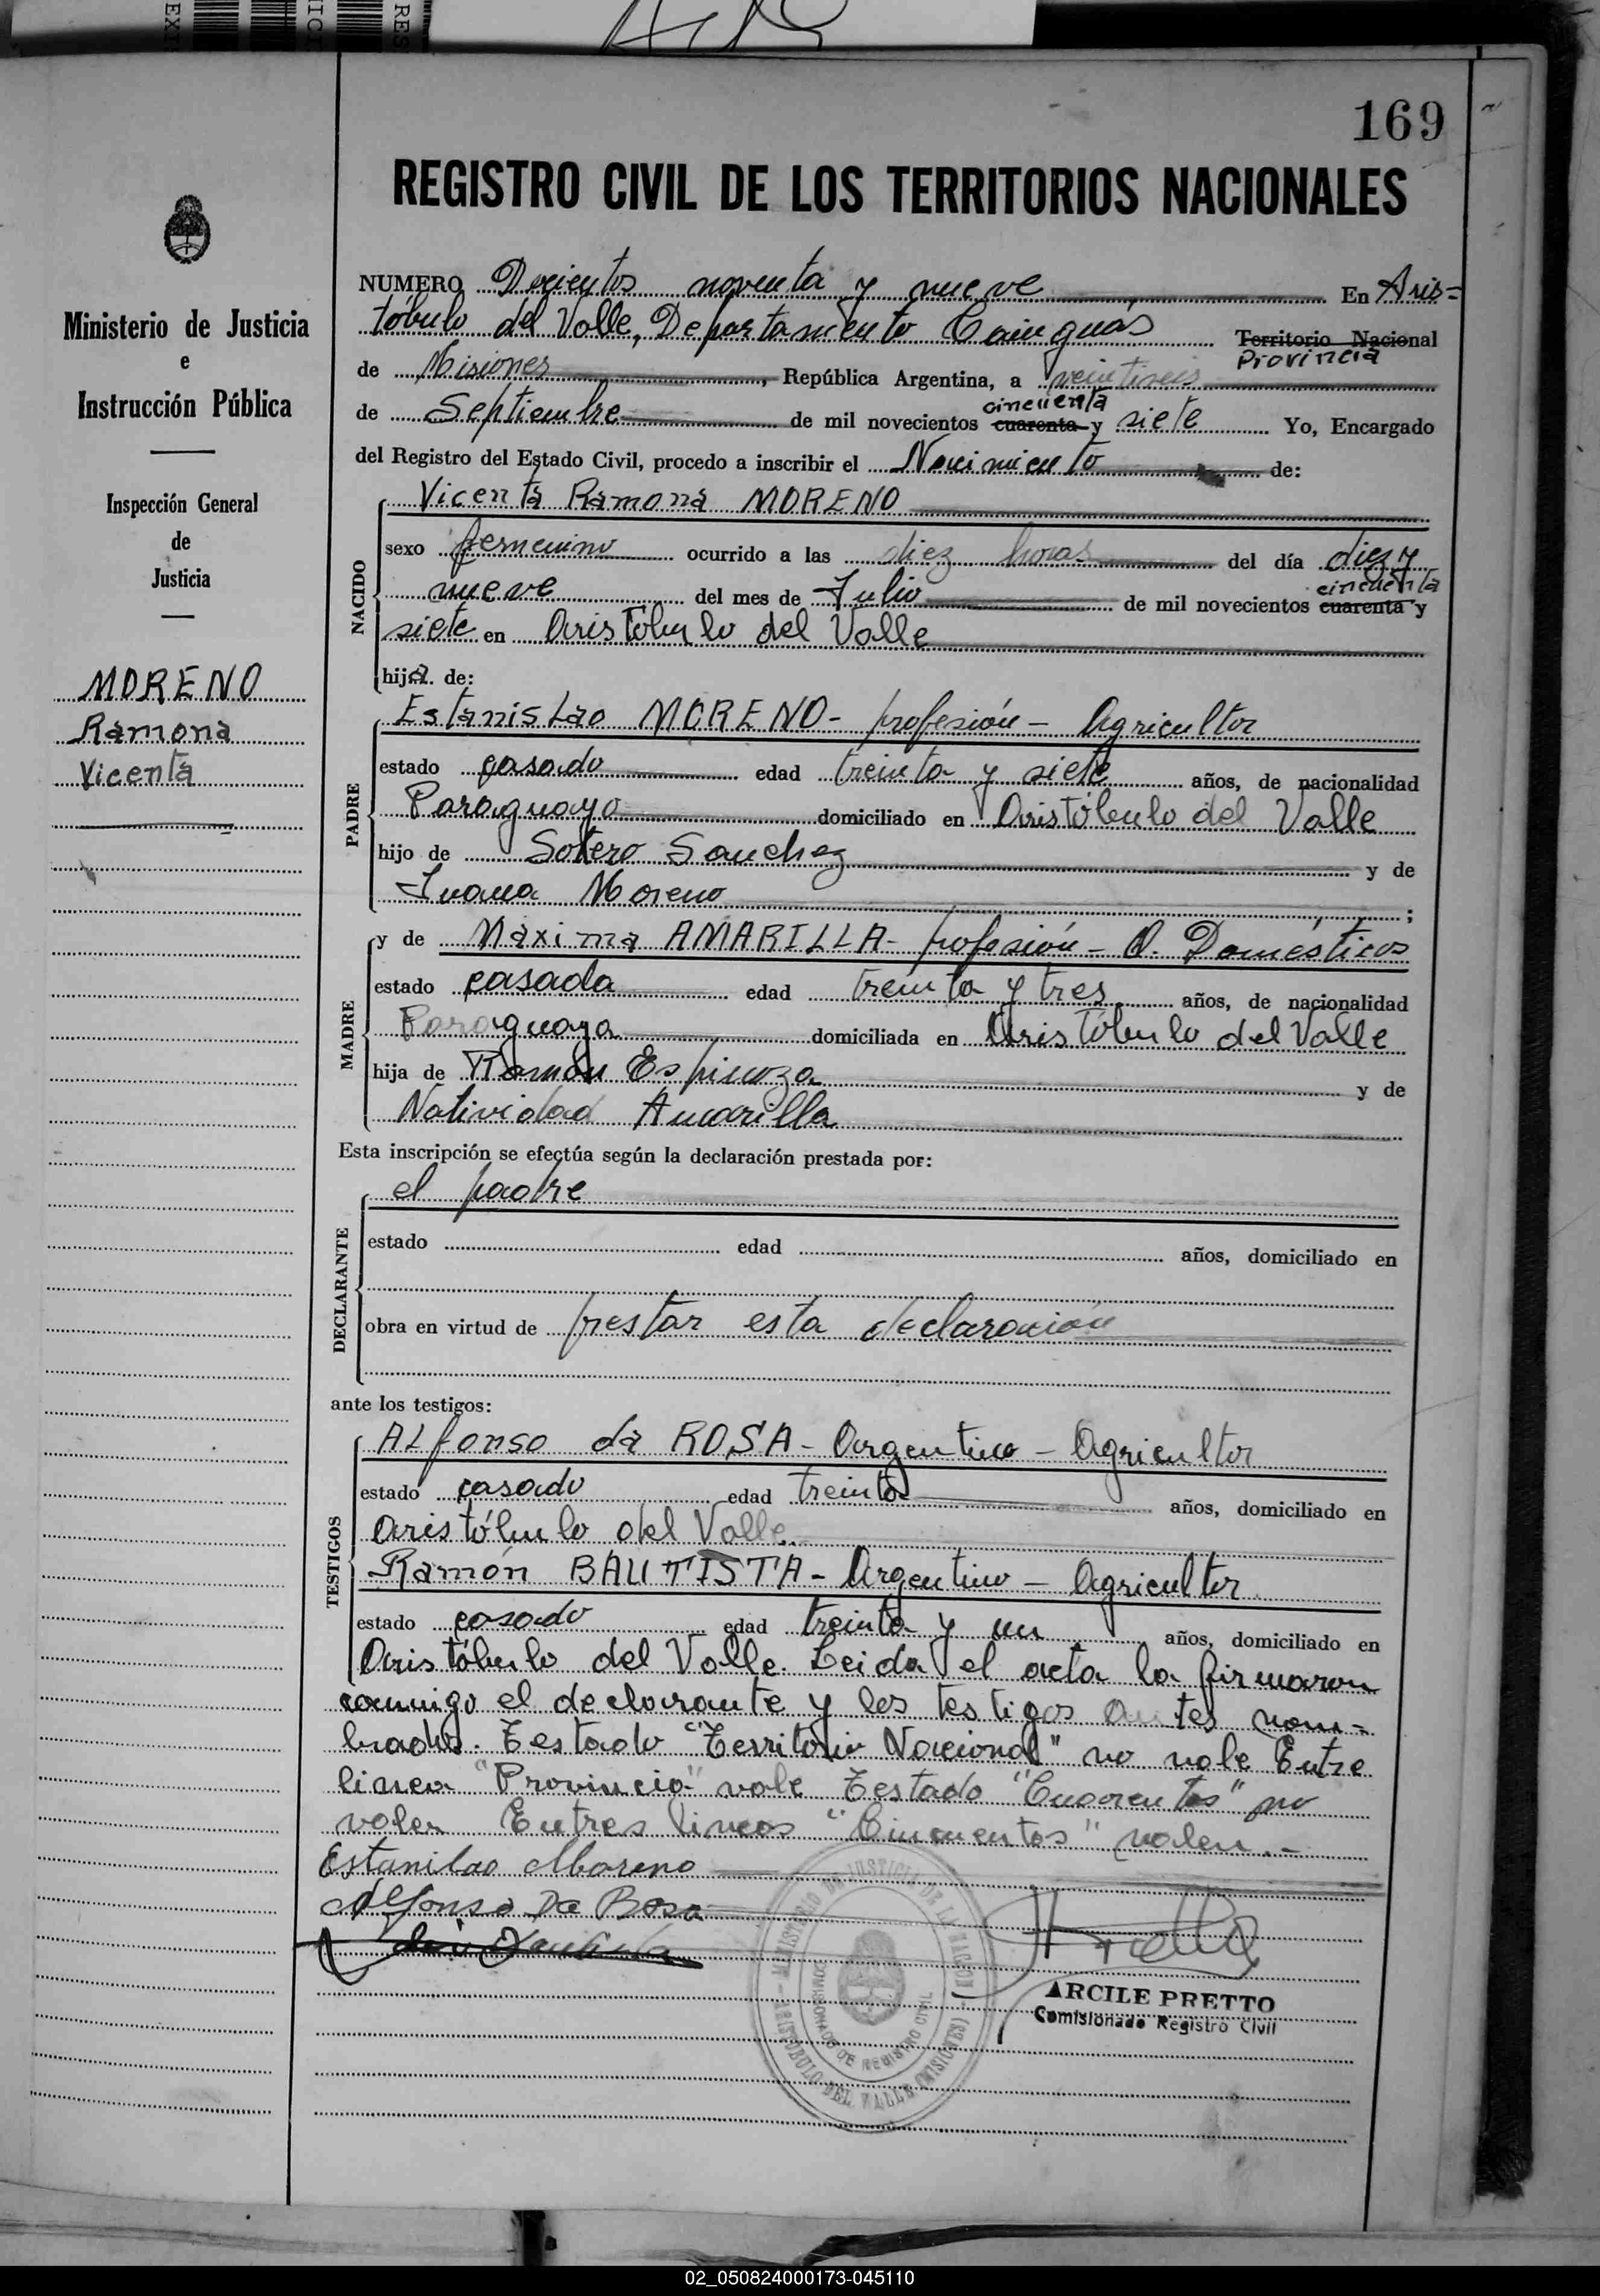 169
REGISTRO CIVIL DE LOS TERRITORIOS NACIONALES
Ministerio de Justicia
e
Instrucción Pública
Inspección General
de
Justicia
MORENO
Ramona
Vicenta
NUMERO Docientos noventa y nueve En Aris=
tóbulo del Valle, Departamento Cainguás Territorio Nacional
Provincia
de Misiones, República Argentina, a veintiseis
de Septiembre de mil novecientos cuarenta y siete Yo, Encargado
cincuenta
del Registro del Estado Civil, procedo a inscribir el Nacimiento de:
NACIDO
Vicenta Ramona MORENO
sexo femenino ocurrido a las diez horas del día diez y
nueve del mes de Julio de mil novecientos cuarenta y
cincuenta
siete en Aristóbulo del Valle
hija de:
PADRE
Estanislao MORENO- profesión - Agricultor
estado casado edad treinta y siete años, de nacionalidad
Paraguaya domiciliado en Aristóbulo del Valle
hijo de Sotero Sanchez y de
Juana Moreno ;
MADRE
y de Máxima AMARILLA- profesión - Q. Domésticos
estado casada edad treinta y tres años, de nacionalidad
Paraguaya domiciliada en Aristóbulo del Valle
hija de Ramón Espinoza y de
Natividad Amarilla
Esta inscripción se efectúa según la declaración prestada por:
DECLARANTE
el padre
estado edad años, domiciliado en
obra en virtud de prestar esta declaración
ante los testigos:
TESTIGOS
ALfonso da ROSA - Argentino - Agricultor
estado casado edad treinta años, domiciliado en
Aristóbulo del Valle
Ramón BAUTISTA - Argentino - Agricultor
estado casado edad treinta y un años, domiciliado en
Aristóbulo del Valle. Leida el acta la firmaron
conmigo el declarante y los testigos antes nom-
brados. Testado "Territorio Nacional" no vale Entre
linea "Provincia" vale Testado "Cuarentas" no
valen Entres lineas "Cincuentas" valen.-
Estanilao Moreno
Alfonso Da Rosa
MINISTERIO DE JUSTICIA DE LA NACION
ARISTOBULO DEL VALLE (MISIONES)
DE REGISTRO CIVIL
ARCILE PRETTO
Comisionado Registro Civil
02_050824000173-045110